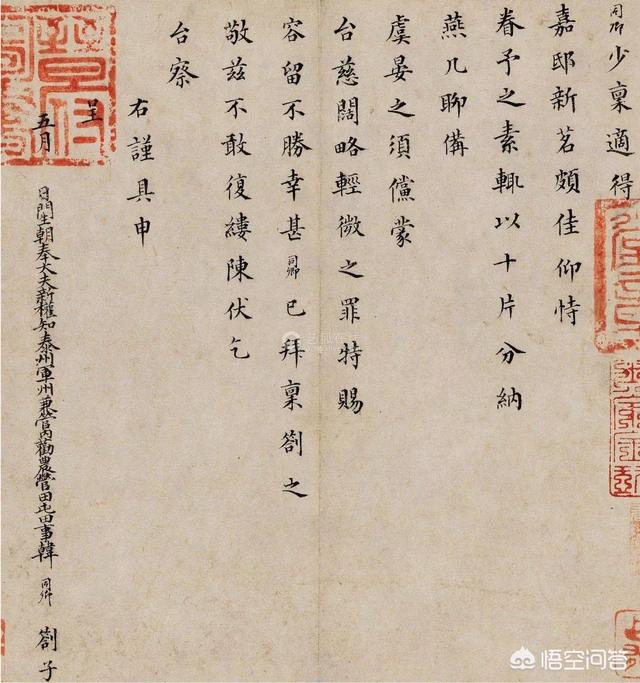 同卿少稟適得
嘉邸新茗頗佳仰恃
眷予之素輒以十片分納
燕几聊備
虞晏之須儻蒙
台慈闊略輕微之罪特賜
容留不勝幸甚同卿已拜稟劄之
敬茲不敢復縷陳伏乞
台察
右謹具申
呈
五月 日門生朝奉大夫新權知泰州軍州兼管內勸農營田屯田事韓 同卿 劄子
悟空问答